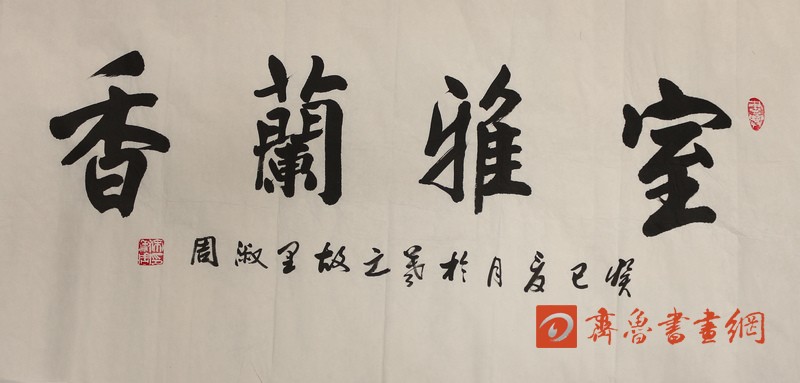 室雅蘭香
癸巳夏月於羲之故里淑周
齊魯書畫網